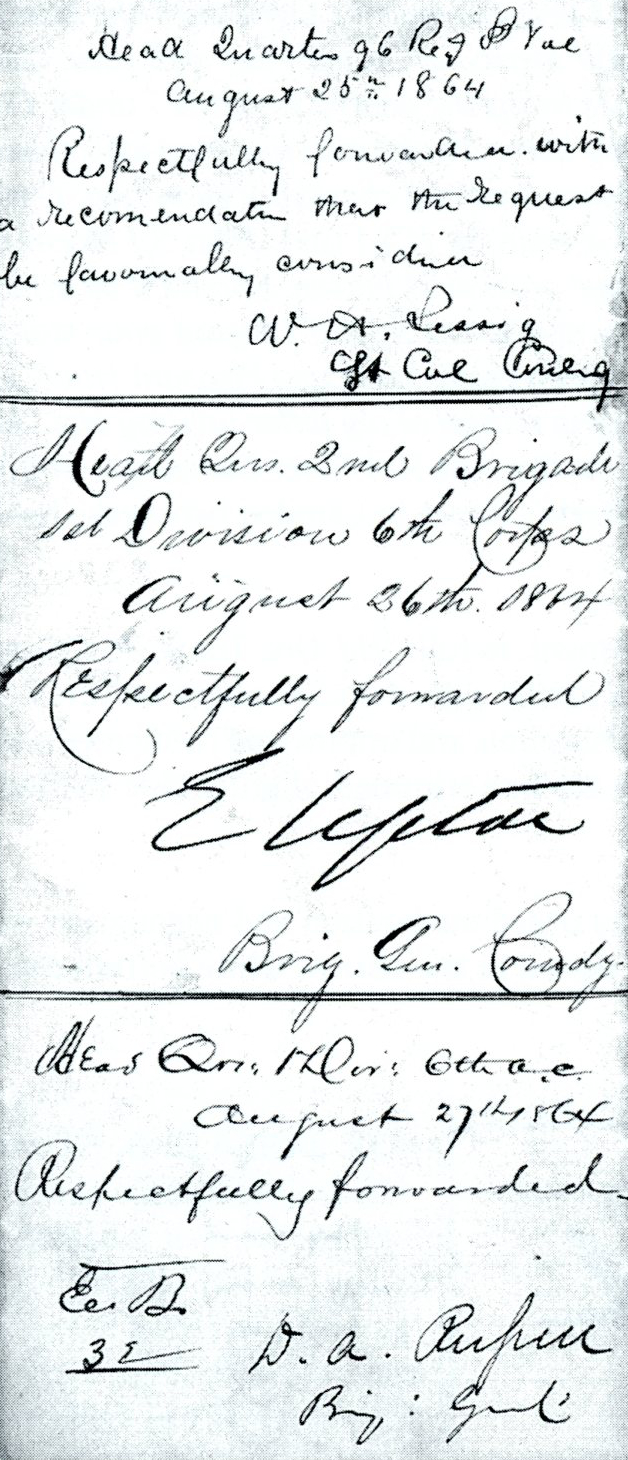 Head Quarters 96 Reg P Vol
August 25th 1864
Respectfully forwarded. with
a recomendatn that the request
be favorably considered
W. H. Lessig
Lt Col Comdg
Head Qrs. 2nd Brigade
1st Division 6th Corps
August 26th. 1864
Respectfully forwarded
E Upton
Brig. Gen. Comdg.
Head Qrs: 1st Div: 6th A.C.
August 27th 1864
Respectfully forwarded.
D. A. Russell
Brig: Genl: